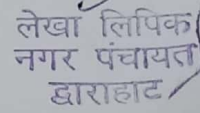 लेखा लिपिक
नगर पंचायत
द्वाराहाट